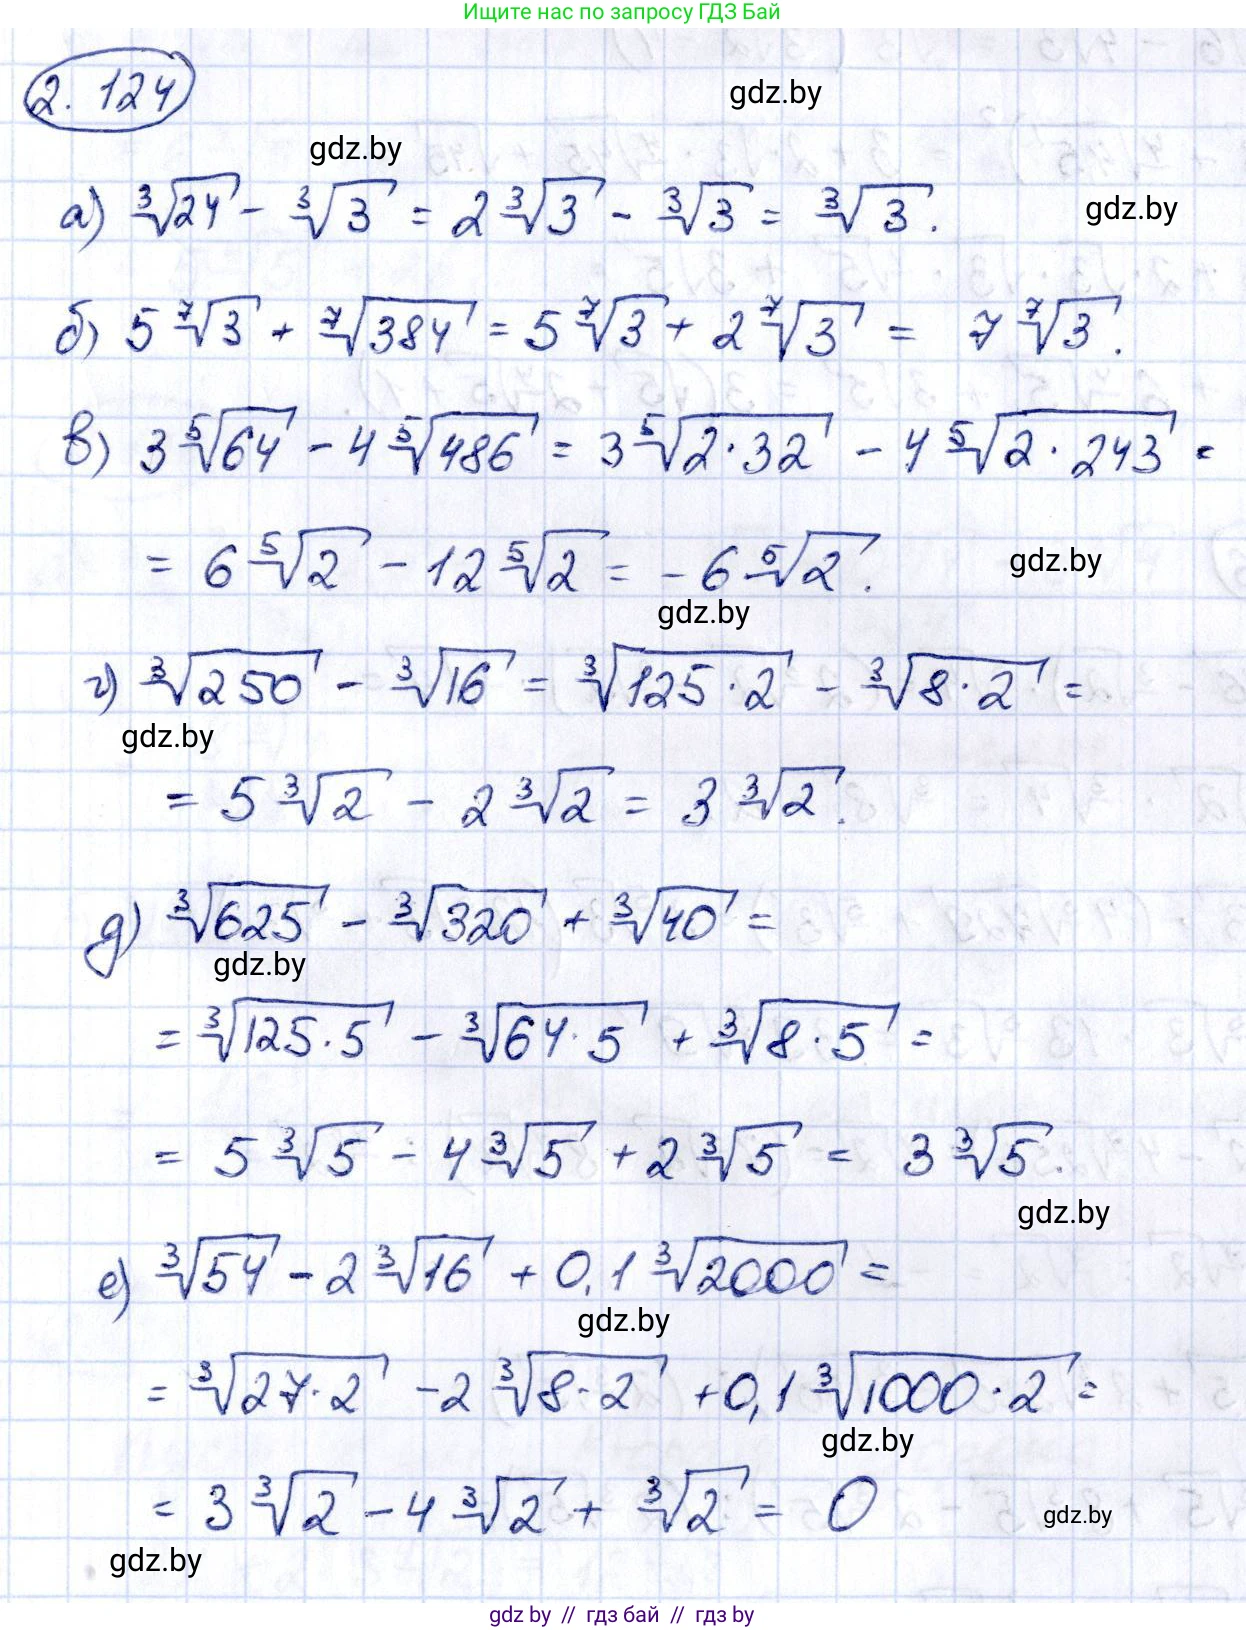 Ищите нас по запросу ГДЗ Бай
2.124
gdz.by
gdz.by
а) ∛24 - ∛3 = 2∛3 - ∛3 = ∛3.
gdz.by
б) 5 ⁷√3 + ⁷√384 = 5 ⁷√3 + 2 ⁷√3 = 7 ⁷√3.
в) 3 ⁵√64 - 4 ⁵√486 = 3 ⁵√(2·32) - 4 ⁵√(2·243) =
= 6 ⁵√2 - 12 ⁵√2 = -6 ⁵√2.
gdz.by
gdz.by
г) ∛250 - ∛16 = ∛(125·2) - ∛(8·2) =
gdz.by
= 5∛2 - 2∛2 = 3∛2.
д) ∛625 - ∛320 + ∛40 =
gdz.by
= ∛(125·5) - ∛(64·5) + ∛(8·5) =
= 5∛5 - 4∛5 + 2∛5 = 3∛5.
gdz.by
е) ∛54 - 2∛16 + 0,1∛2000 =
gdz.by
= ∛(27·2) - 2∛(8·2) + 0,1∛(1000·2) =
gdz.by
= 3∛2 - 4∛2 + ∛2 = 0
gdz.by
gdz.by
gdz.by // гдз бай // гдз by